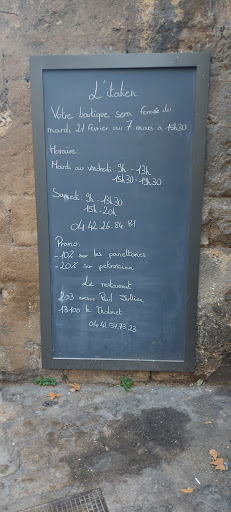 L'italien
Votre boutique sera fermée du
mardi 21 février au 7 mars à 15h30
Horaires:
Mardi au vendredi 9h - 13h
15h30 - 19h30
Samedi: 9h - 13h30
15h - 20h
04 42 26 84 81
Promo:
-10% sur les panettones
-20% sur
Le restaurant
203 avenue Paul Jullien
13100 le Tholonet
04.42.57.73.23